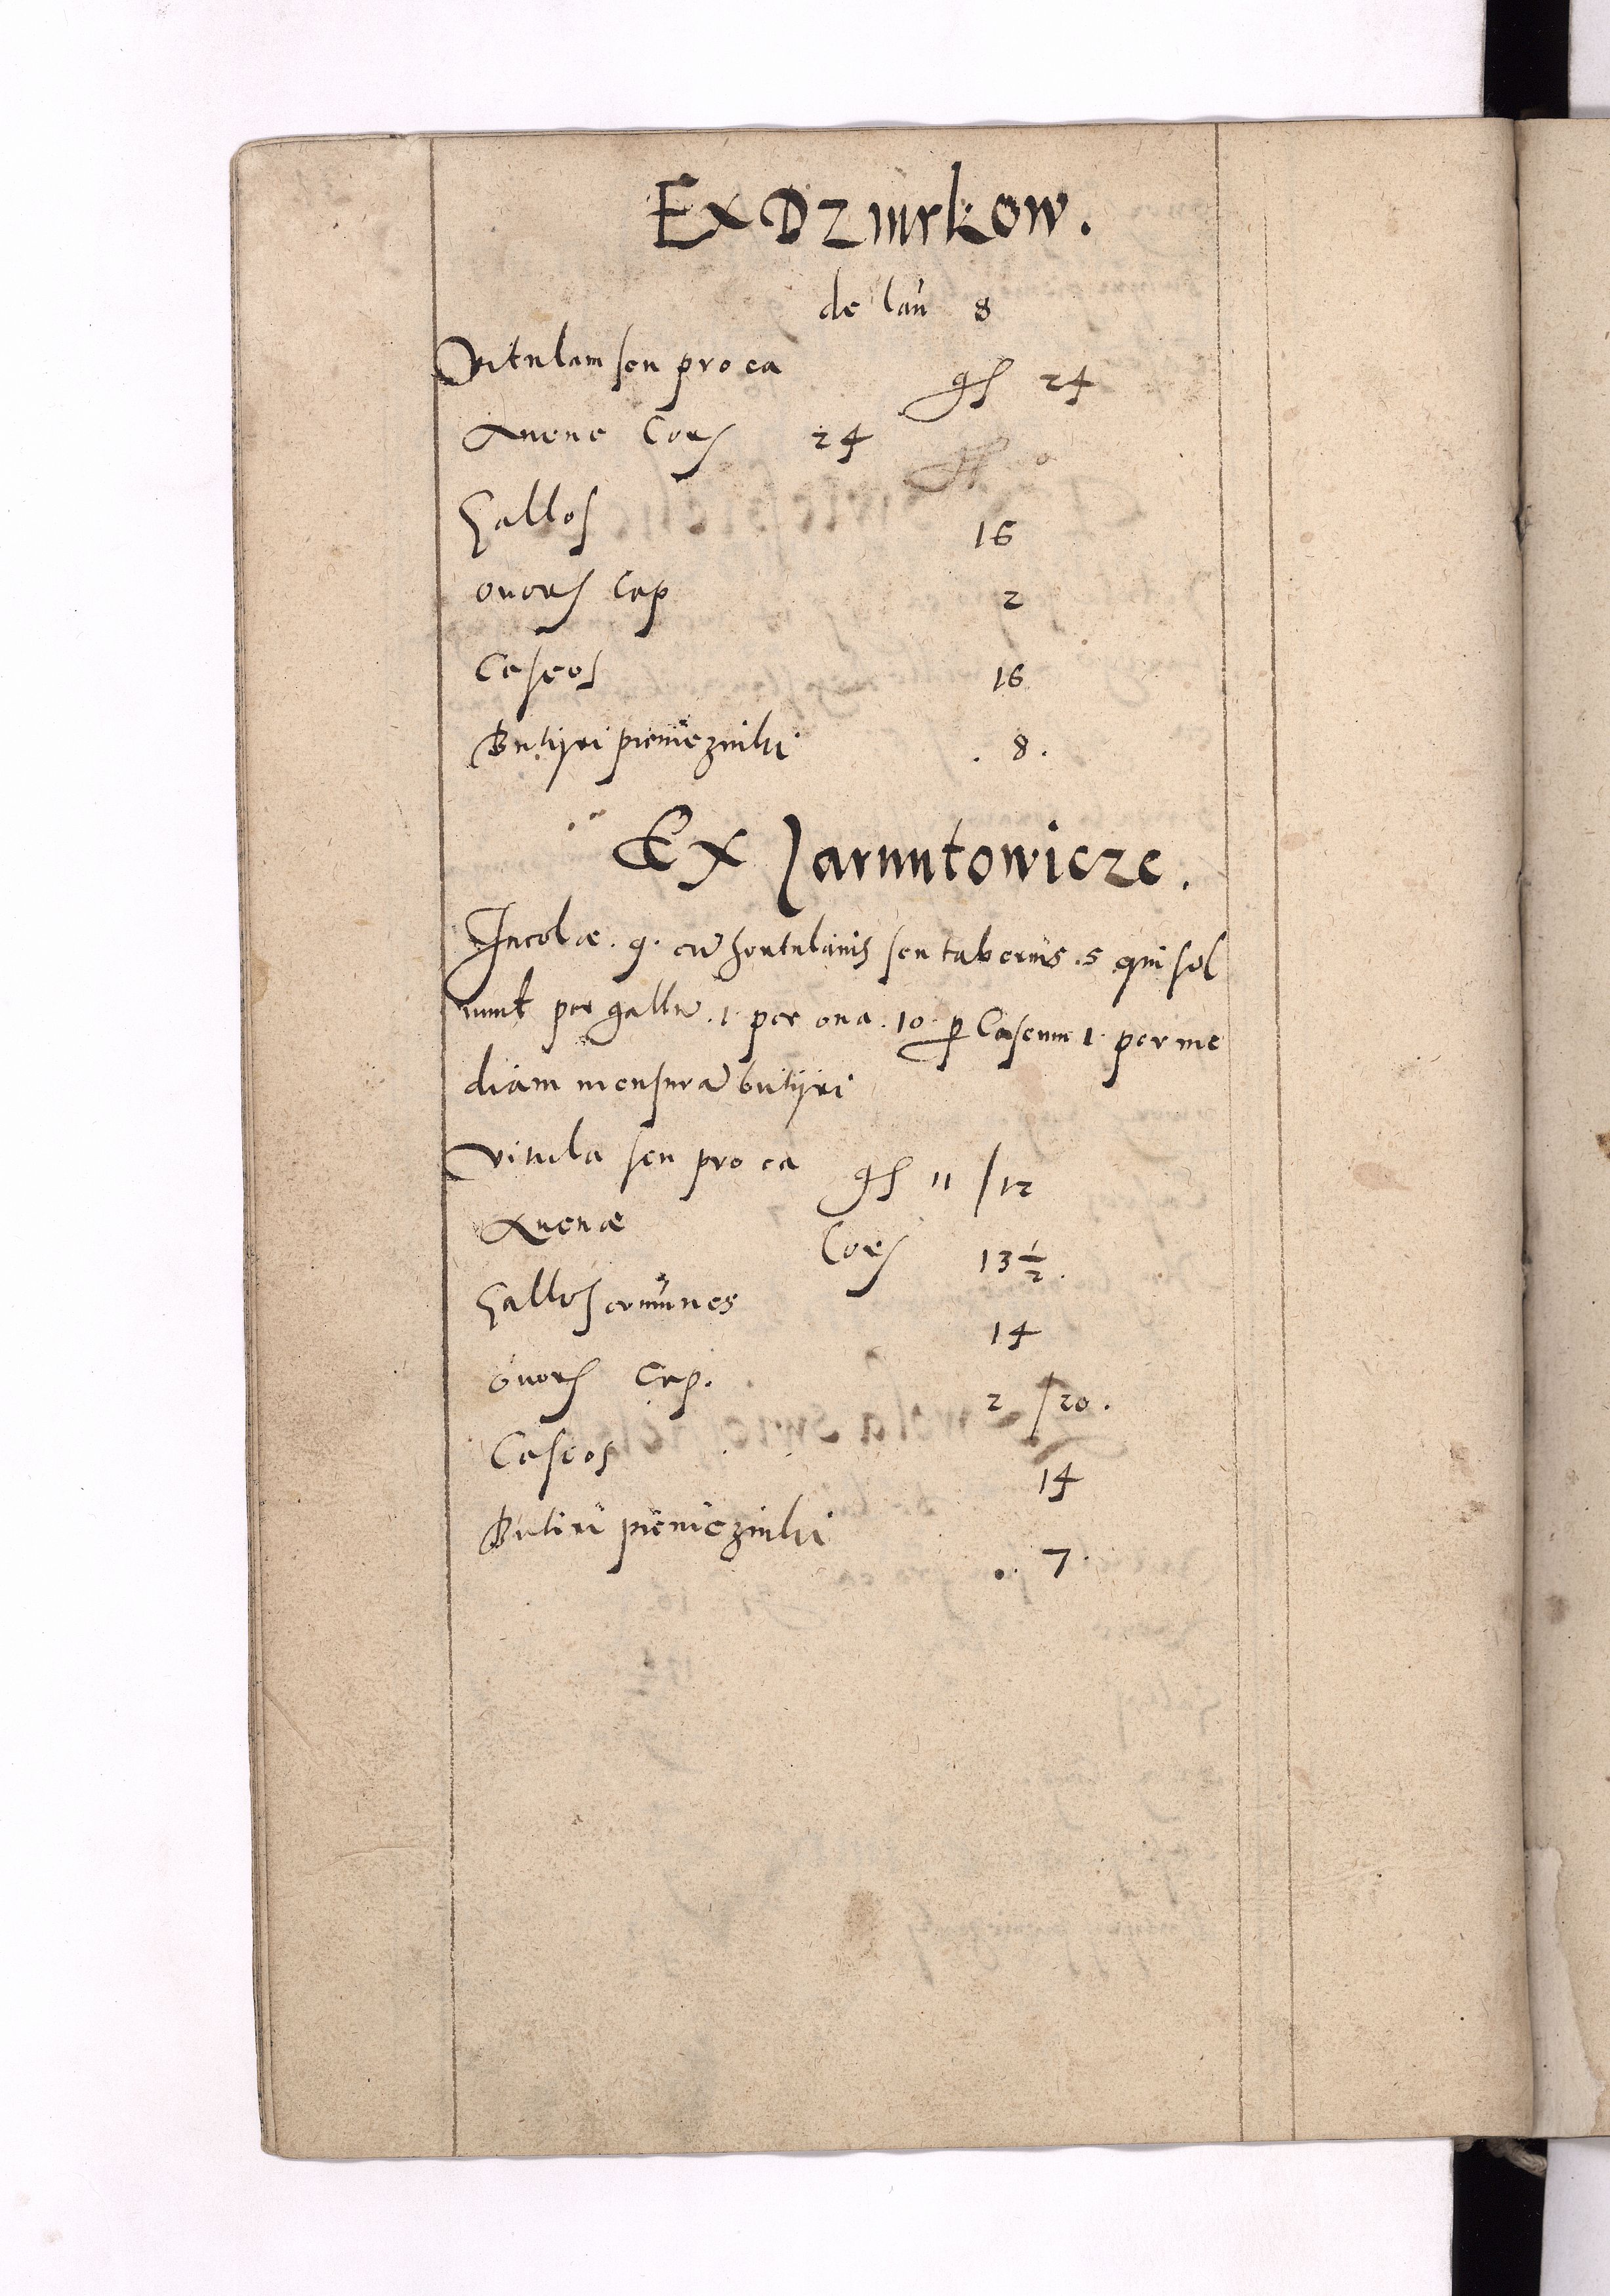 Ex Dzmrkow.
de lañ 8
Vitulam seu pro ea gſ 24
Auene Corſ 24
Gallos 16
ouorſ Cap 2
Caseos 16
Butijri pienieznihi . 8 .
Ex Jaruntowicze.
Incolæ . 9 . cũ hortulanis seu tabernis . 5 qui sol
uunt per gallũ . 1 . per oua . 10 . p Caseum 1 . per me
diam mensurã butijri
vitula seu pro ea gſ 11 / 12
Auenæ Corſ 13 1/2 .
Gallos cõmunes 14
ouorſ Cap. 2 / 20 .
Caseos 14
Butiri pienieznihi . 7 .